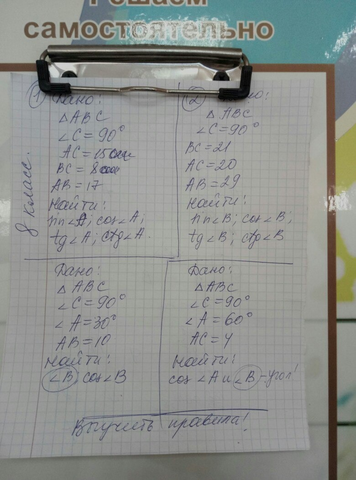 Решаем
самостоятельно
8 класс.
① Дано:
△ABC
∠C=90°
AC=15см
BC=8см
AB=17
Найти:
sin∠A; cos∠A;
tg∠A; ctg∠A.
② Дано:
△ABC
∠C=90°
BC=21
AC=20
AB=29
Найти:
sin∠B; cos∠B;
tg∠B; ctg∠B
Дано:
△ABC
∠C=90°
∠A=30°
AB=10
Найти:
∠B cos∠B
Дано:
△ABC
∠C=90°
∠A=60°
AC=4
Найти:
cos∠A и ∠B-угол!
Выучить правила!